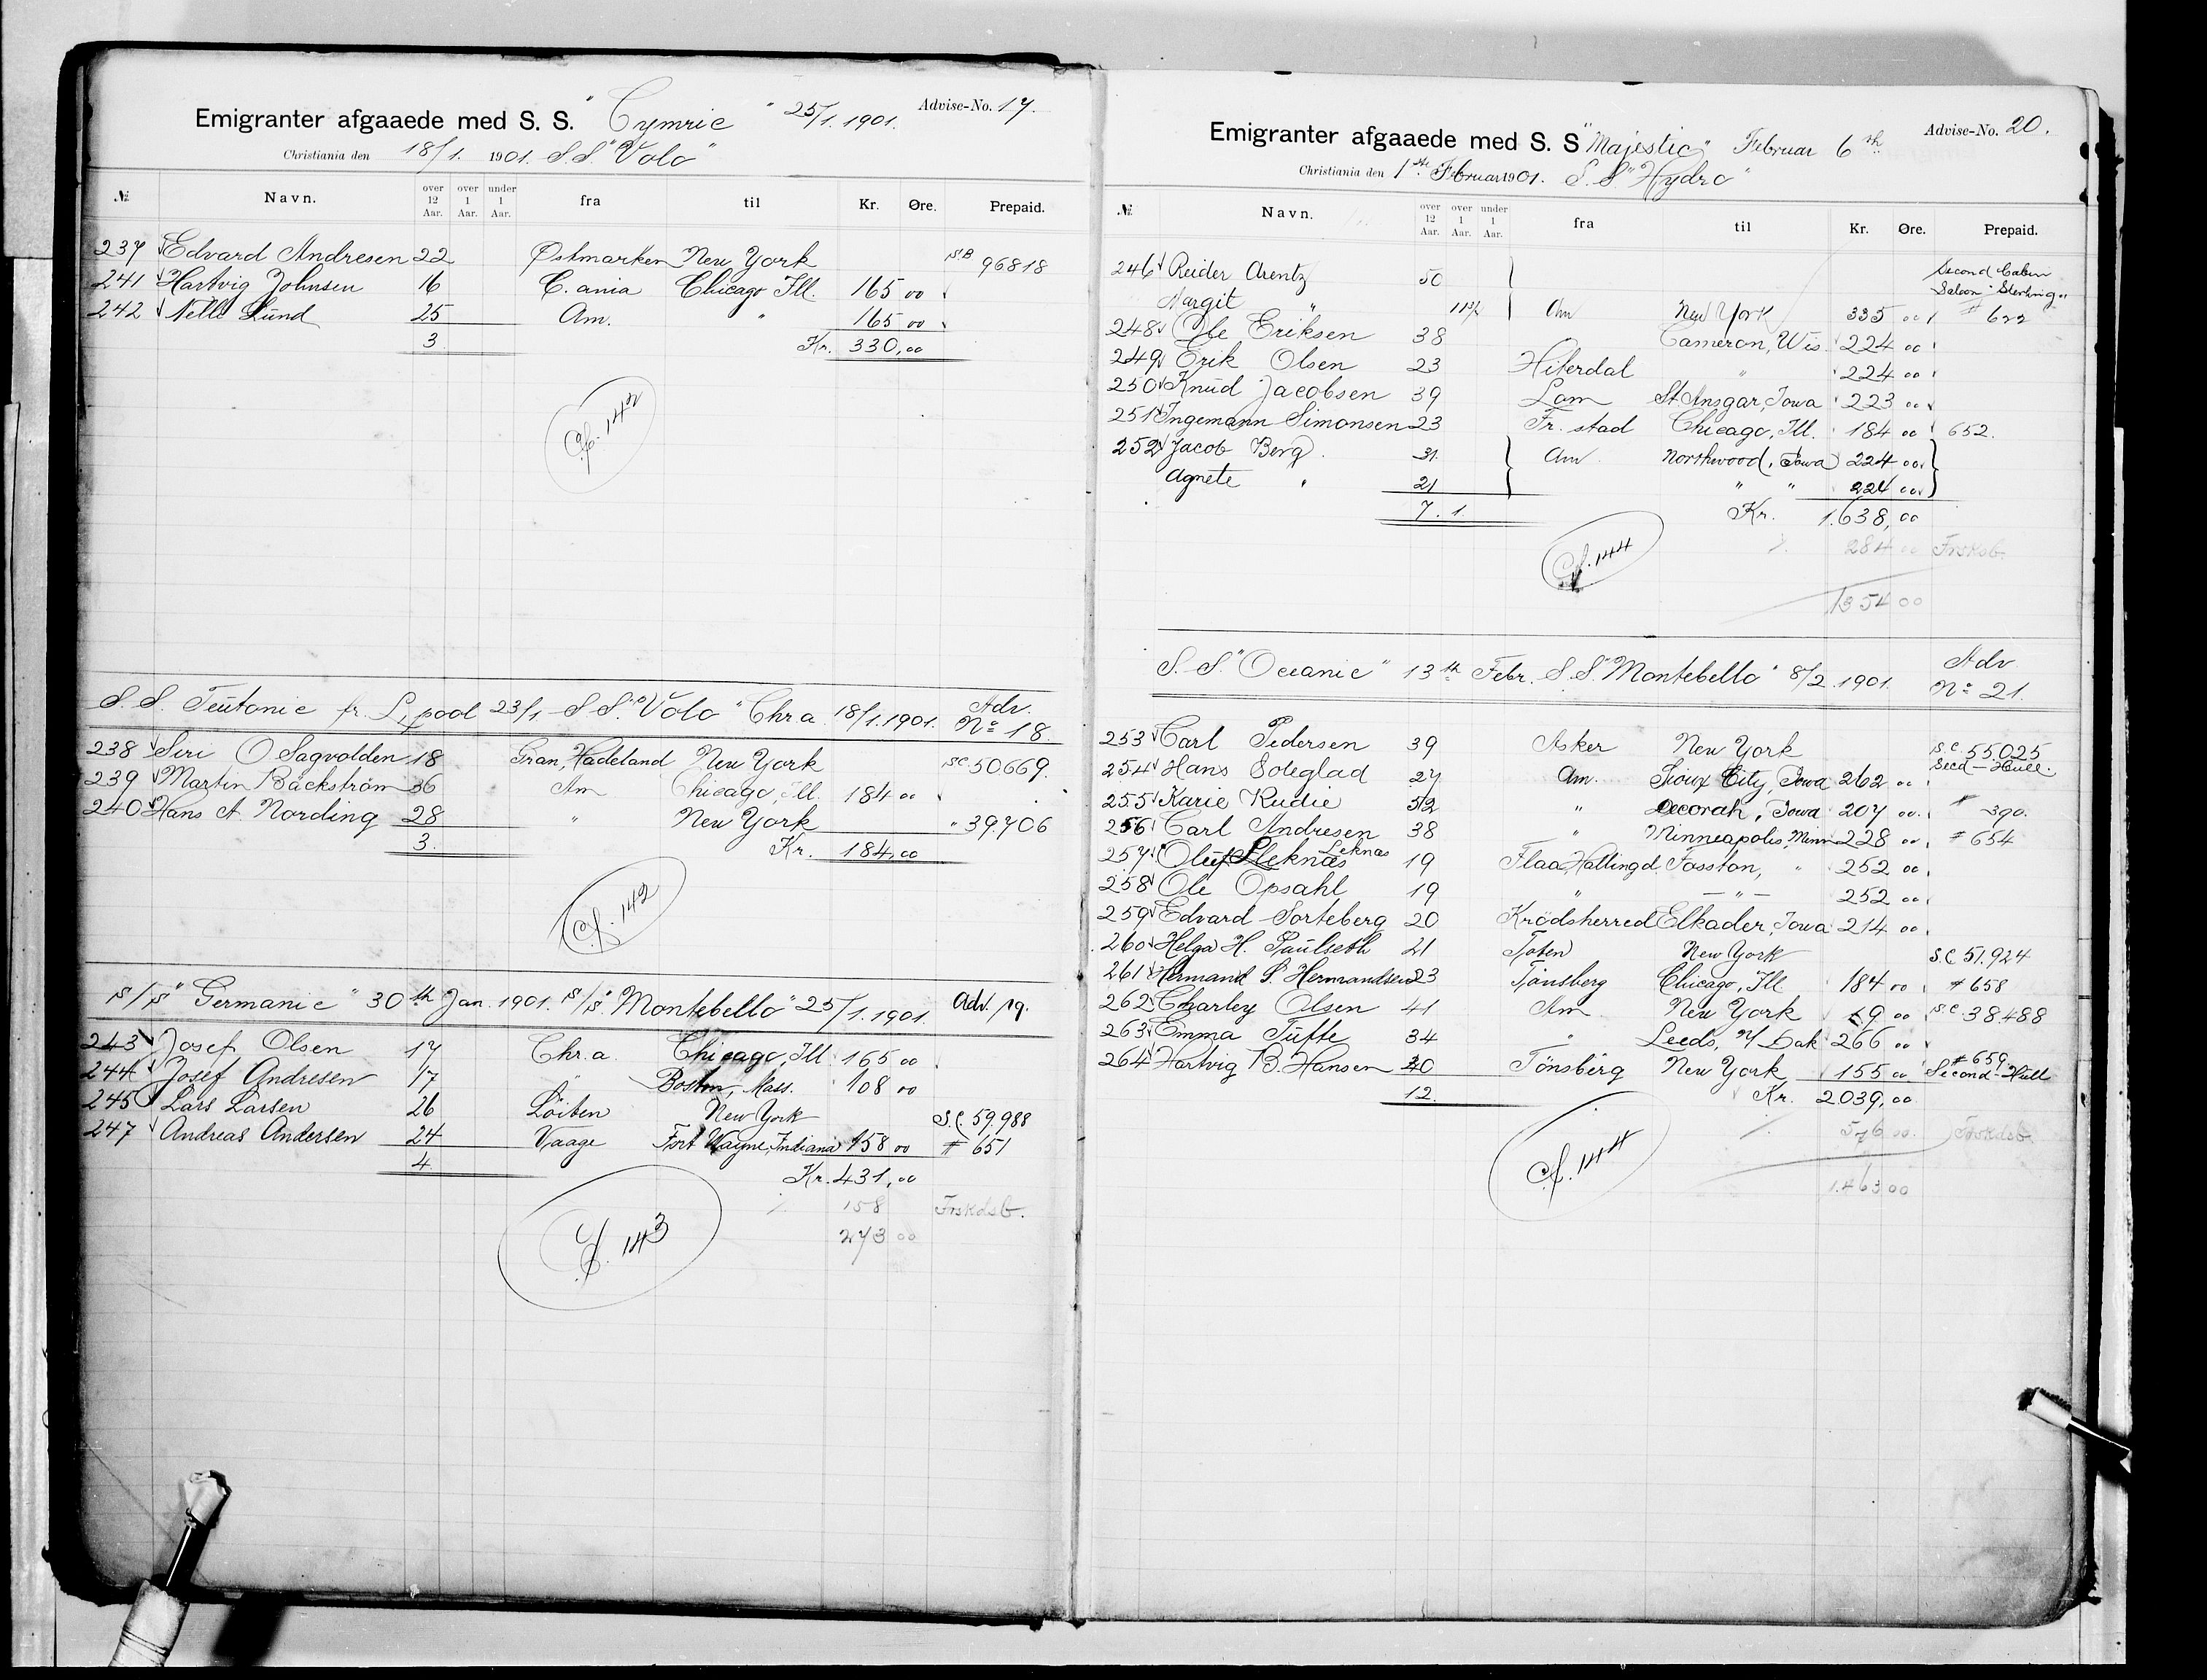 Emigranter afgaaede med S. S. "Cymric" 25/1. 1901. Advise-No. 17.
Christiania den 18/1. 1901. S.S. "Volo"
№ Navn. over 12 Aar. over 1 Aar. under 1 Aar. fra til Kr. Øre. Prepaid.
237 Edvard Andresen 22 Østmarken New York S.B 96818
241 Hartvig Johnsen 16 C.ania Chicago Ill. 165 00
242 Nelle Lund 25 Am. " 165 00
3 Kr. 330,00
Cf. 142
S. S. Teutonic fr. L,pool 23/1 S S. "Volo" Chr.a 18/1.1901. Adv. No 18.
238 Siri O Sagvolden 18 Gran, Hadeland New York S.C. 50669.
239 Martin Bäckström 36 Am Chicago, Ill. 184 00
240 Hans A. Nording 28 " New York " 39706
3. Kr. 184,00
Cf. 142
S/S "Germanic" 30th Jan. 1901. S/S "Montebello" 25/1.1901. Adv. 19.
243 Josef Olsen 17 Chr.a. Chicago, Ill 165 00
244 Josef Andresen 17 " Boston, Mass. 108 00
245 Lars Larsen 26 Löiten New York S.C. 59.988
247 Andreas Andersen 24 Vaage Fort Wayne, Indiana 158 00 # 651
4 Kr. 431,00
% 158 Frskdsb.
273 00
Cf. 143
Emigranter afgaaede med S. S "Majestic" Februar 6th Advise-No. 20.
Christiania den 1st Februar 1901. S. S "Hydro"
№ Navn. over 12 Aar. over 1 Aar. under 1 Aar. fra til Kr. Øre. Prepaid.
246 Reider Arentz 50 Second Cabin
Saloon "Sterling"
Margit " 11 1/2 Am New York 335 00 # 622
248 Ole Eriksen 38 Cameron, Wis. 224 00
249 Erik Olsen 23 Hiterdal " 224 00
250 Knud Jacobsen 39 Lom St Ansgar, Iowa 223 00
251 Ingemann Simonsen 23 Fr.stad Chicago, Ill. 184 00 652.
252 Jacob Berg. 31. Am Northwood, Iowa 224 00
Agnete " 21 " " 224 00
7. 1. Kr. 1.638,00
% 284 00 Frskdsb.
1354 00
Cf. 144
S. S. "Oceanic" 13th Febr. S.S. "Montebello" 8/2.1901. Adv. No 21.
253 Carl Pedersen 39 Asker New York S.C. 55025
254 Hans Soleglad 27 Am. Sioux City, Iowa 262 00 Secd - Hull.
255 Karie Rudie 52 " Decorah, Iowa 207 00 # 390.
256 Carl Andresen 38 " Minneapolis, Minn 228 00 # 654
257 Oluf Leknæs Leknæs 19 Flaa, Hallingd. Fosston, " 252 00
258 Ole Opsahl 19 " — " — 252 00
259 Edvard Sorteberg 20 Krödsherred Elkader, Iowa 214 00
260 Helga H. Paulseth 21 Toten New York S.C 51.924
261 Hermand S. Hermandsen 23 Tønsberg Chicago, Ill. 184 00 # 658
262 Charley Olsen 41 Am New York 19 00 S.C. 38488
263 Emma Tufte 34 " Leeds, N/Dak 266 00
264 Hartvig B. Hansen 40 Tönsberg New York 155 00 # 659 Second - Hull
12. Kr. 2039,00
% 576 00. Frskdsb.
1.463 00
Cf. 144